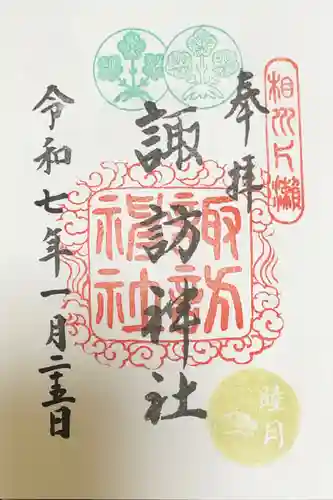 相州片瀬
奉拝
諏訪神社
諏訪
神社
令和七年一月二十五日
睦月